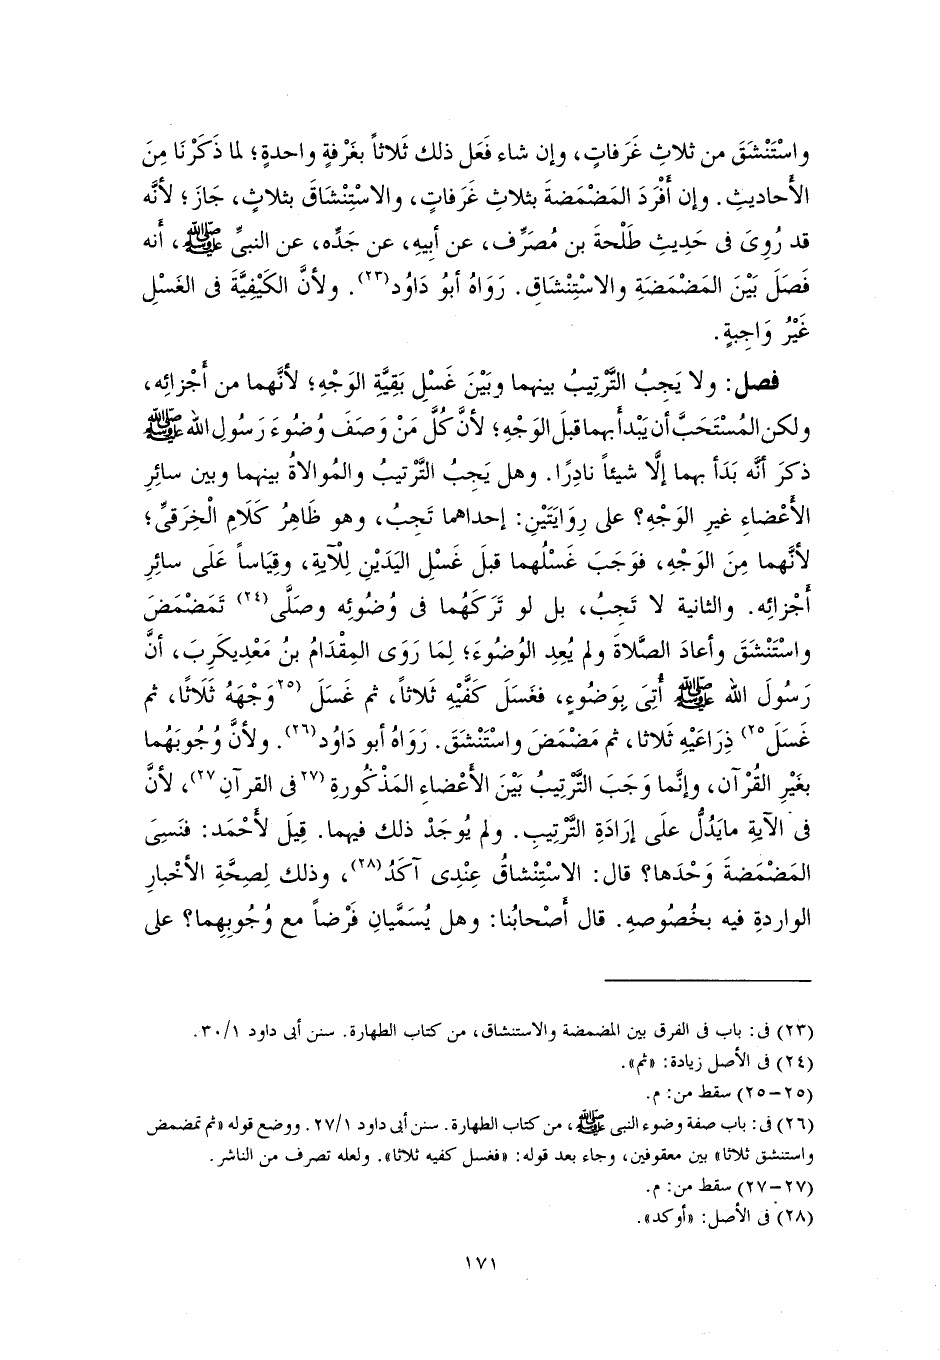 واسْتَنْشَقَ من ثلاثِ غَرَفاتٍ، وإن شاء فَعَل ذلك ثَلاثاً بغَرْفةٍ واحدةٍ؛ لما ذَكَرْنَا مِنَ
الأَحاديثِ. وإن أَفْرَدَ المَضْمَضةَ بثلاثِ غَرَفاتٍ، والاسْتِنْشَاقَ بثلاثٍ، جَازَ؛ لأنَّه
قد رُوِىَ فى حَدِيثِ طَلْحةَ بن مُصَرِّف، عن أبيهِ، عن جَدِّه، عن النبىِّ ﷺ، أنه
فَصَلَ بَيْنَ المَضْمَضَةِ والاسْتِنْشَاقِ. رَوَاهُ أبو دَاوُد(٢٣). ولأنَّ الكَيْفِيَّةَ فى الغَسْلِ
غَيْرُ وَاجِبةٍ.
فصل: ولا يَجِبُ التَّرْتِيبُ بينهما وبَيْنَ غَسْلِ بَقِيَّةِ الوَجْهِ؛ لأنَّهما من أَجْزائِه،
ولكن المُسْتَحَبَّ أن يَبْدأَ بهما قبلَ الوَجْهِ؛ لأنَّ كُلَّ مَنْ وَصَفَ وُضُوءَ رَسُولِ الله ﷺ
ذكرَ أنَّه بَدَأ بهما إلَّا شيئاً نادِرًا. وهل يَجِبُ التَّرْتيبُ والمُوالاةُ بينهما وبين سائِرِ
الأَعْضاءِ غيرِ الوَجْهِ؟ على رِوايَتَيْنِ: إحداهما تَجِبُ، وهو ظَاهِرُ كَلَامِ الْخِرَقىِّ؛
لأنَّهما مِنَ الوَجْهِ، فوَجَبَ غَسْلُهما قبلَ غَسْلِ اليَدَيْنِ لِلْآيةِ، وقِيَاساً عَلَى سائِرِ
أَجْزائِه. والثانية لا تَجِبُ، بل لو تَرَكَهُما فى وُضُوئِه وصَلَّى(٢٤) تَمَضْمَضَ
واسْتَنْشَقَ وأعادَ الصَّلاةَ ولم يُعِدِ الوُضُوءَ؛ لِمَا رَوَى المِقْدَامُ بنُ مَعْدِيكَرِبَ، أنَّ
رَسُولَ الله ﷺ أُتِىَ بِوَضُوءٍ، فغَسَلَ كَفَّيْهِ ثَلاثاً، ثم غَسَلَ (٢٥وَجْهَهُ ثَلَاثًا، ثم
غَسَلَ٢٥) ذِرَاعَيْهِ ثَلاثا، ثم مَضْمَضَ واسْتَنْشَقَ. رَوَاهُ أبو دَاوُد(٢٦). ولأنَّ وُجُوبَهُما
بغَيْرِ القُرْآن، وإنَّما وَجَبَ التَّرْتِيبُ بَيْنَ الأَعْضاءِ المَذْكُورةِ (٢٧فى القرآنِ٢٧)، لأنَّ
فى الآيةِ مايَدُلُّ علَى إرَادَةِ التَّرْتِيبِ. ولم يُوجَدْ ذلك فيهما. قِيلَ لأَحْمَد: فنَسِىَ
المَضْمَضةَ وَحْدَها؟ قال: الاسْتِنْشاقُ عِنْدِى آكَدُ(٢٨)، وذلك لِصِحَّةِ الأخْبارِ
الواردةِ فيه بخُصُوصِهِ. قال أَصْحابُنا: وهل يُسَمَّيانِ فَرْضاً مع وُجُوبِهِما؟ على
(٢٣) فى: باب فى الفرق بين المضمضة والاستنشاق، من كتاب الطهارة. سنن أبى داود ١/ ٣٠.
(٢٤) فى الأصل زيادة: «ثم».
(٢٥-٢٥) سقط من: م.
(٢٦) فى: باب صفة وضوء النبى ﷺ، من كتاب الطهارة. سنن أبى داود ١/ ٢٧. ووضع قوله «ثم تمضمض
واستنشق ثلاثا» بين معقوفين، وجاء بعد قوله: «فغسل كفيه ثلاثا». ولعله تصرف من الناشر.
(٢٧-٢٧) سقط من: م.
(٢٨) فى الأصل: «أوكد».
١٧١